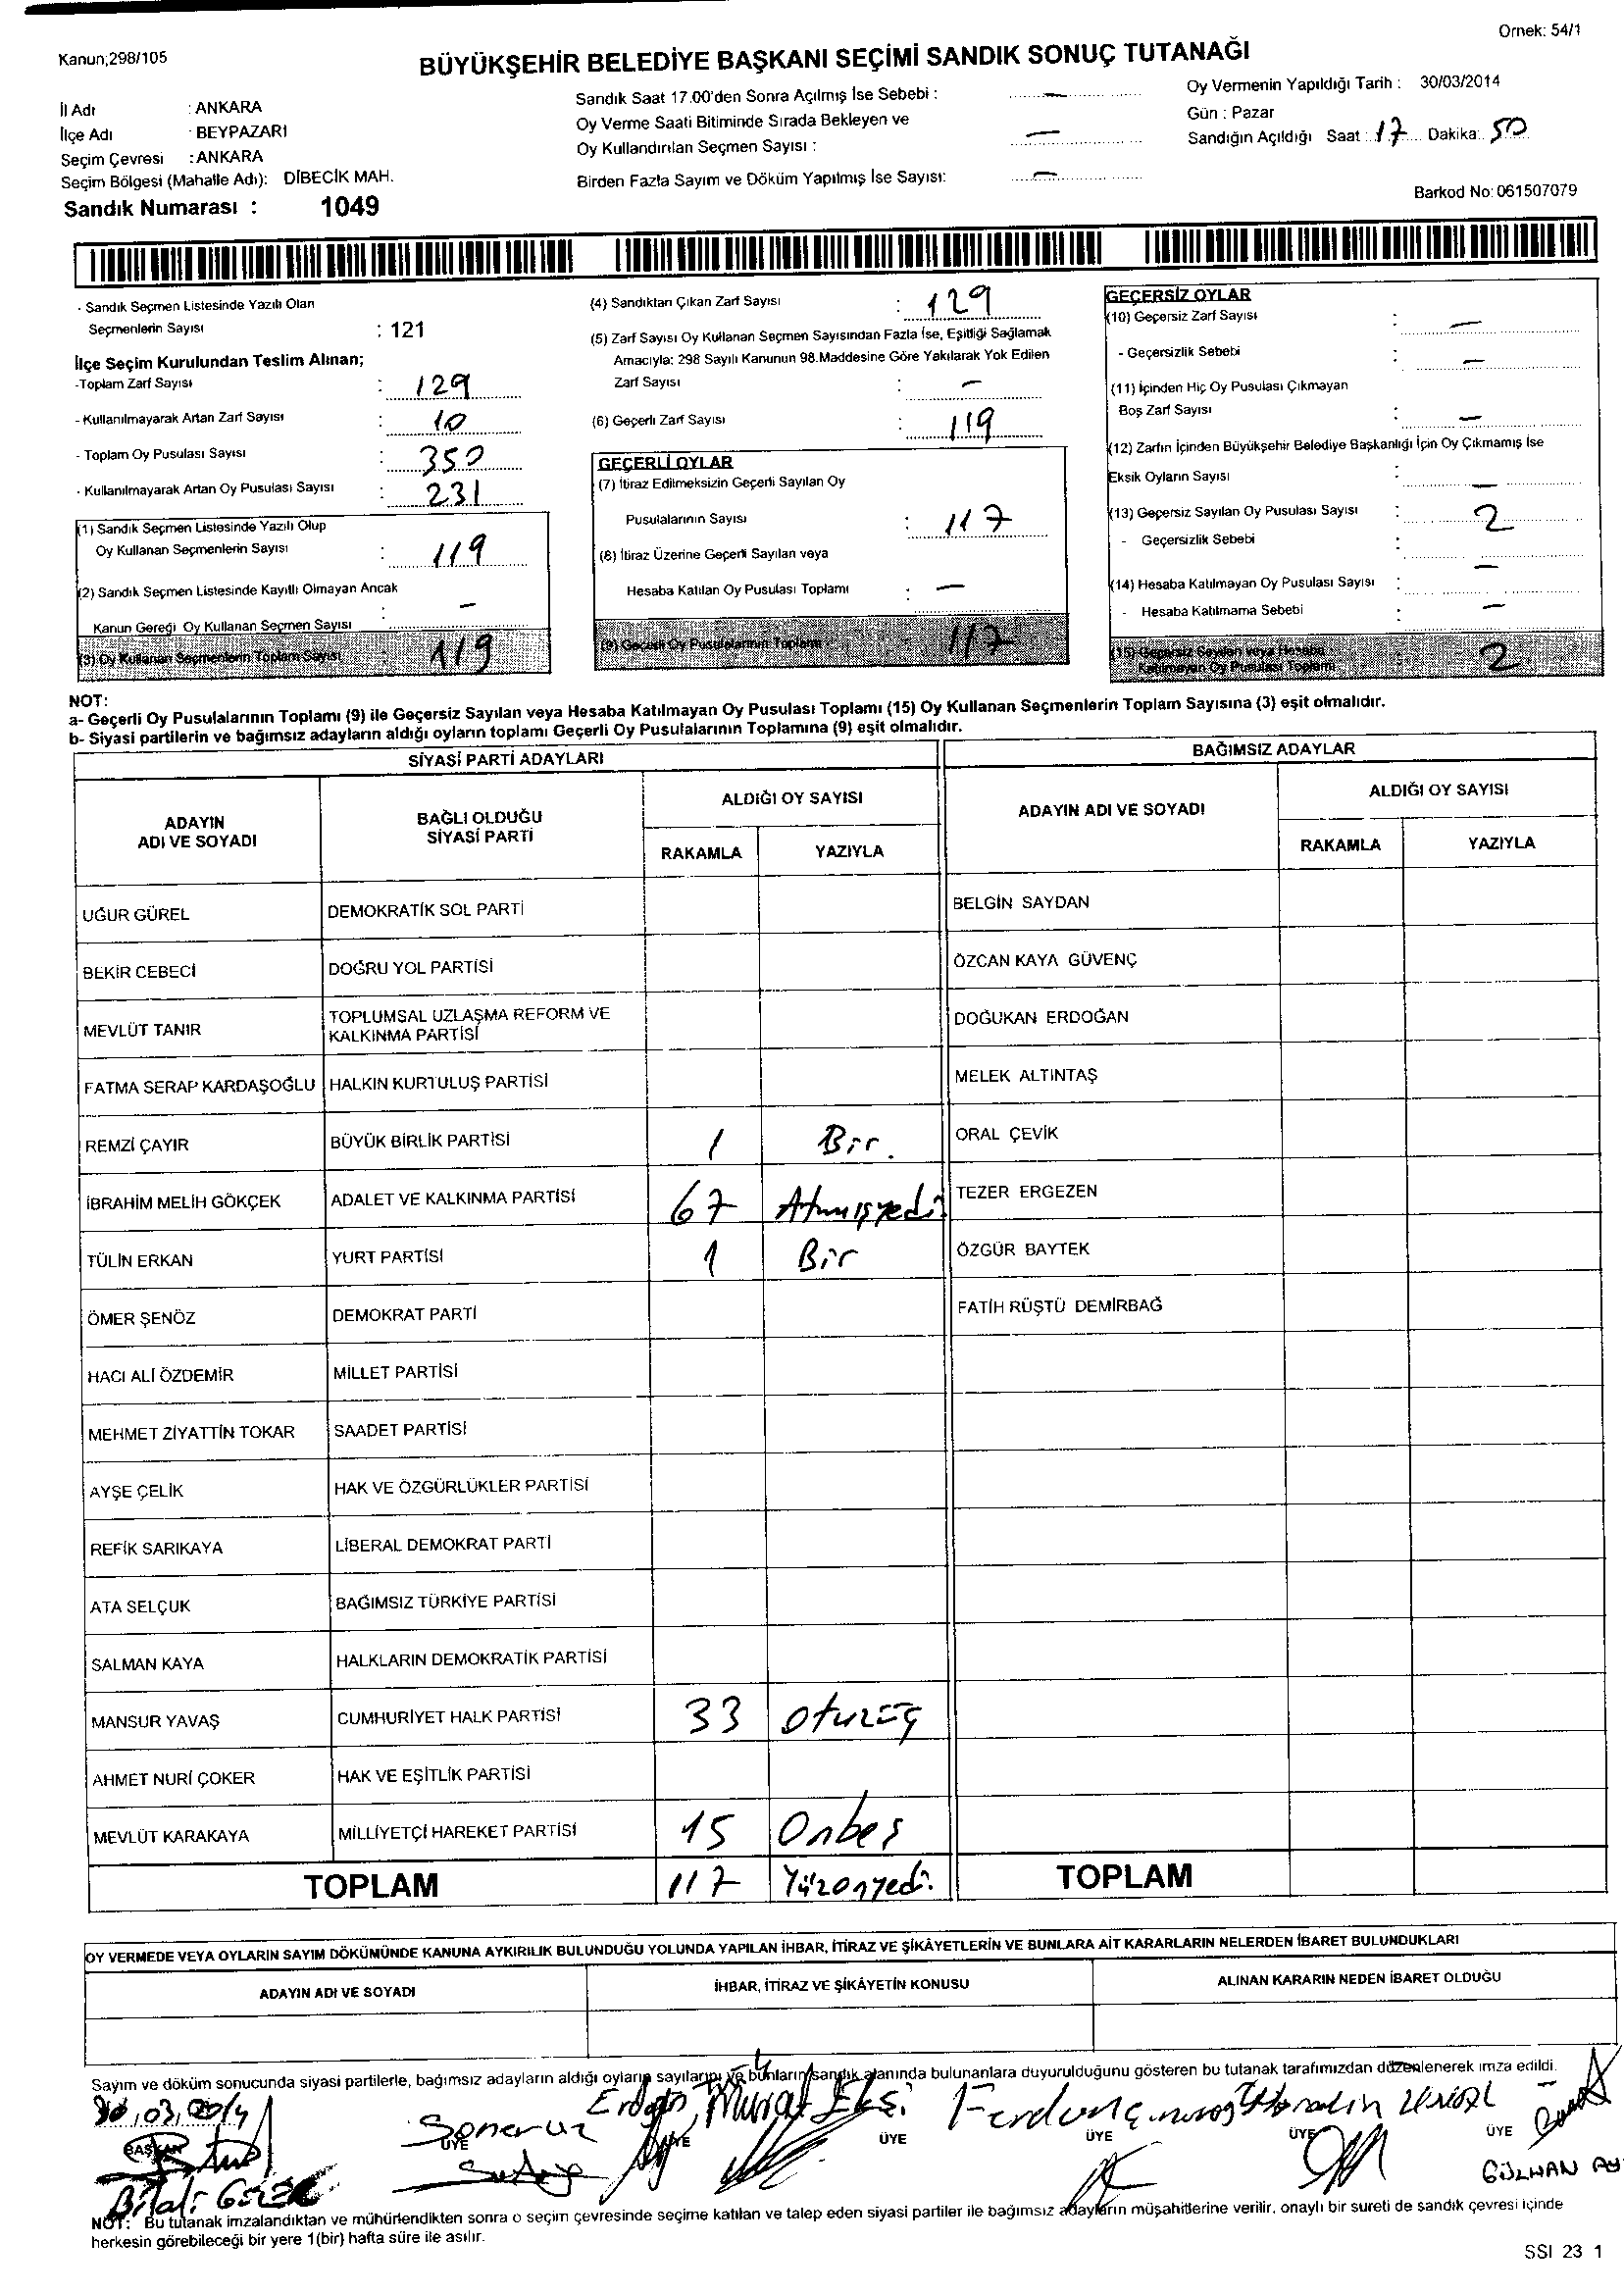 Ornek: 54/1
Kanun;298/105
BÜYÜKŞEHİR BELEDİYE BAŞKANI SEÇİMİ SANDIK SONUÇ TUTANAĞI
İl Adı : ANKARA
İlçe Adı : BEYPAZARI
Seçim Çevresi : ANKARA
Seçim Bölgesi (Mahalle Adı): DİBECİK MAH.
Sandık Numarası : 1049
Sandık Saat 17.00'den Sonra Açılmış İse Sebebi : —
Oy Verme Saati Bitiminde Sırada Bekleyen ve
Oy Kullandırılan Seçmen Sayısı : —
Birden Fazla Sayım ve Döküm Yapılmış İse Sayısı: —
Oy Vermenin Yapıldığı Tarih : 30/03/2014
Gün : Pazar
Sandığın Açıldığı Saat : 17 Dakika: 50
Barkod No: 061507079
- Sandık Seçmen Listesinde Yazılı Olan
Seçmenlerin Sayısı : 121
İlçe Seçim Kurulundan Teslim Alınan;
-Toplam Zarf Sayısı : 129
- Kullanılmayarak Artan Zarf Sayısı : 10
- Toplam Oy Pusulası Sayısı : 350
- Kullanılmayarak Artan Oy Pusulası Sayısı : 231
(1) Sandık Seçmen Listesinde Yazılı Olup
Oy Kullanan Seçmenlerin Sayısı : 119
(2) Sandık Seçmen Listesinde Kayıtlı Olmayan Ancak
Kanun Gereği Oy Kullanan Seçmen Sayısı : —
(3) Oy Kullanan Seçmenlerin Toplam Sayısı : 119
(4) Sandıktan Çıkan Zarf Sayısı : 129
(5) Zarf Sayısı Oy Kullanan Seçmen Sayısından Fazla İse, Eşitliği Sağlamak
Amacıyla: 298 Sayılı Kanunun 98.Maddesine Göre Yakılarak Yok Edilen
Zarf Sayısı : —
(6) Geçerli Zarf Sayısı : 119
GEÇERLİ OYLAR
(7) İtiraz Edilmeksizin Geçerli Sayılan Oy
Pusulalarının Sayısı : 117
(8) İtiraz Üzerine Geçerli Sayılan veya
Hesaba Katılan Oy Pusulası Toplamı : —
(9) Geçerli Oy Pusulalarının Toplamı : 117
GEÇERSİZ OYLAR
(10) Geçersiz Zarf Sayısı : —
- Geçersizlik Sebebi : —
(11) İçinden Hiç Oy Pusulası Çıkmayan
Boş Zarf Sayısı : —
(12) Zarfın İçinden Büyükşehir Belediye Başkanlığı İçin Oy Çıkmamış İse
Eksik Oyların Sayısı : —
(13) Geçersiz Sayılan Oy Pusulası Sayısı : 2
- Geçersizlik Sebebi :
(14) Hesaba Katılmayan Oy Pusulası Sayısı : —
- Hesaba Katılmama Sebebi : —
(15) Geçersiz Sayılan veya Hesaba
Katılmayan Oy Pusulası Toplamı : 2
NOT:
a- Geçerli Oy Pusulalarının Toplamı (9) ile Geçersiz Sayılan veya Hesaba Katılmayan Oy Pusulası Toplamı (15) Oy Kullanan Seçmenlerin Toplam Sayısına (3) eşit olmalıdır.
b- Siyasi partilerin ve bağımsız adayların aldığı oyların toplamı Geçerli Oy Pusulalarının Toplamına (9) eşit olmalıdır.
SİYASİ PARTİ ADAYLARI BAĞIMSIZ ADAYLAR
ADAYIN ADI VE SOYADI BAĞLI OLDUĞU SİYASİ PARTİ ALDIĞI OY SAYISI ADAYIN ADI VE SOYADI ALDIĞI OY SAYISI
RAKAMLA YAZIYLA RAKAMLA YAZIYLA
UĞUR GÜREL DEMOKRATİK SOL PARTİ BELGİN SAYDAN
BEKİR CEBECİ DOĞRU YOL PARTİSİ ÖZCAN KAYA GÜVENÇ
MEVLÜT TANIR TOPLUMSAL UZLAŞMA REFORM VE KALKINMA PARTİSİ DOĞUKAN ERDOĞAN
FATMA SERAP KARDAŞOĞLU HALKIN KURTULUŞ PARTİSİ MELEK ALTINTAŞ
REMZİ ÇAYIR BÜYÜK BİRLİK PARTİSİ 1 Bir. ORAL ÇEVİK
İBRAHİM MELİH GÖKÇEK ADALET VE KALKINMA PARTİSİ 67 Atmışyedi TEZER ERGEZEN
TÜLİN ERKAN YURT PARTİSİ 1 Bir ÖZGÜR BAYTEK
ÖMER ŞENÖZ DEMOKRAT PARTİ FATİH RÜŞTÜ DEMİRBAĞ
HACI ALİ ÖZDEMİR MİLLET PARTİSİ
MEHMET ZİYATTİN TOKAR SAADET PARTİSİ
AYŞE ÇELİK HAK VE ÖZGÜRLÜKLER PARTİSİ
REFİK SARIKAYA LİBERAL DEMOKRAT PARTİ
ATA SELÇUK BAĞIMSIZ TÜRKİYE PARTİSİ
SALMAN KAYA HALKLARIN DEMOKRATİK PARTİSİ
MANSUR YAVAŞ CUMHURİYET HALK PARTİSİ 33 Otuzüç
AHMET NURİ ÇOKER HAK VE EŞİTLİK PARTİSİ
MEVLÜT KARAKAYA MİLLİYETÇİ HAREKET PARTİSİ 15 Onbeş
TOPLAM 117 Yüzonyedi. TOPLAM
OY VERMEDE VEYA OYLARIN SAYIM DÖKÜMÜNDE KANUNA AYKIRILIK BULUNDUĞU YOLUNDA YAPILAN İHBAR, İTİRAZ VE ŞİKÂYETLERİN VE BUNLARA AİT KARARLARIN NELERDEN İBARET BULUNDUKLARI
ADAYIN ADI VE SOYADI İHBAR, İTİRAZ VE ŞİKÂYETİN KONUSU ALINAN KARARIN NEDEN İBARET OLDUĞU
Sayım ve döküm sonucunda siyasi partilerle, bağımsız adayların aldığı oyların sayılarını ve bunların sandık alanında bulunanlara duyurulduğunu gösteren bu tutanak tarafımızdan düzenlenerek imza edildi.
30.03.2014 Erdoğan Murat Ekşi
BAŞKAN ÜYE ÜYE ÜYE ÜYE ÜYE ÜYE
Bilal GÜLHAN
NOT: Bu tutanak imzalandıktan ve mühürlendikten sonra o seçim çevresinde seçime katılan ve talep eden siyasi partiler ile bağımsız adayların müşahitlerine verilir, onaylı bir sureti de sandık çevresi içinde
herkesin görebileceği bir yere 1(bir) hafta süre ile asılır.
SSI 23 1